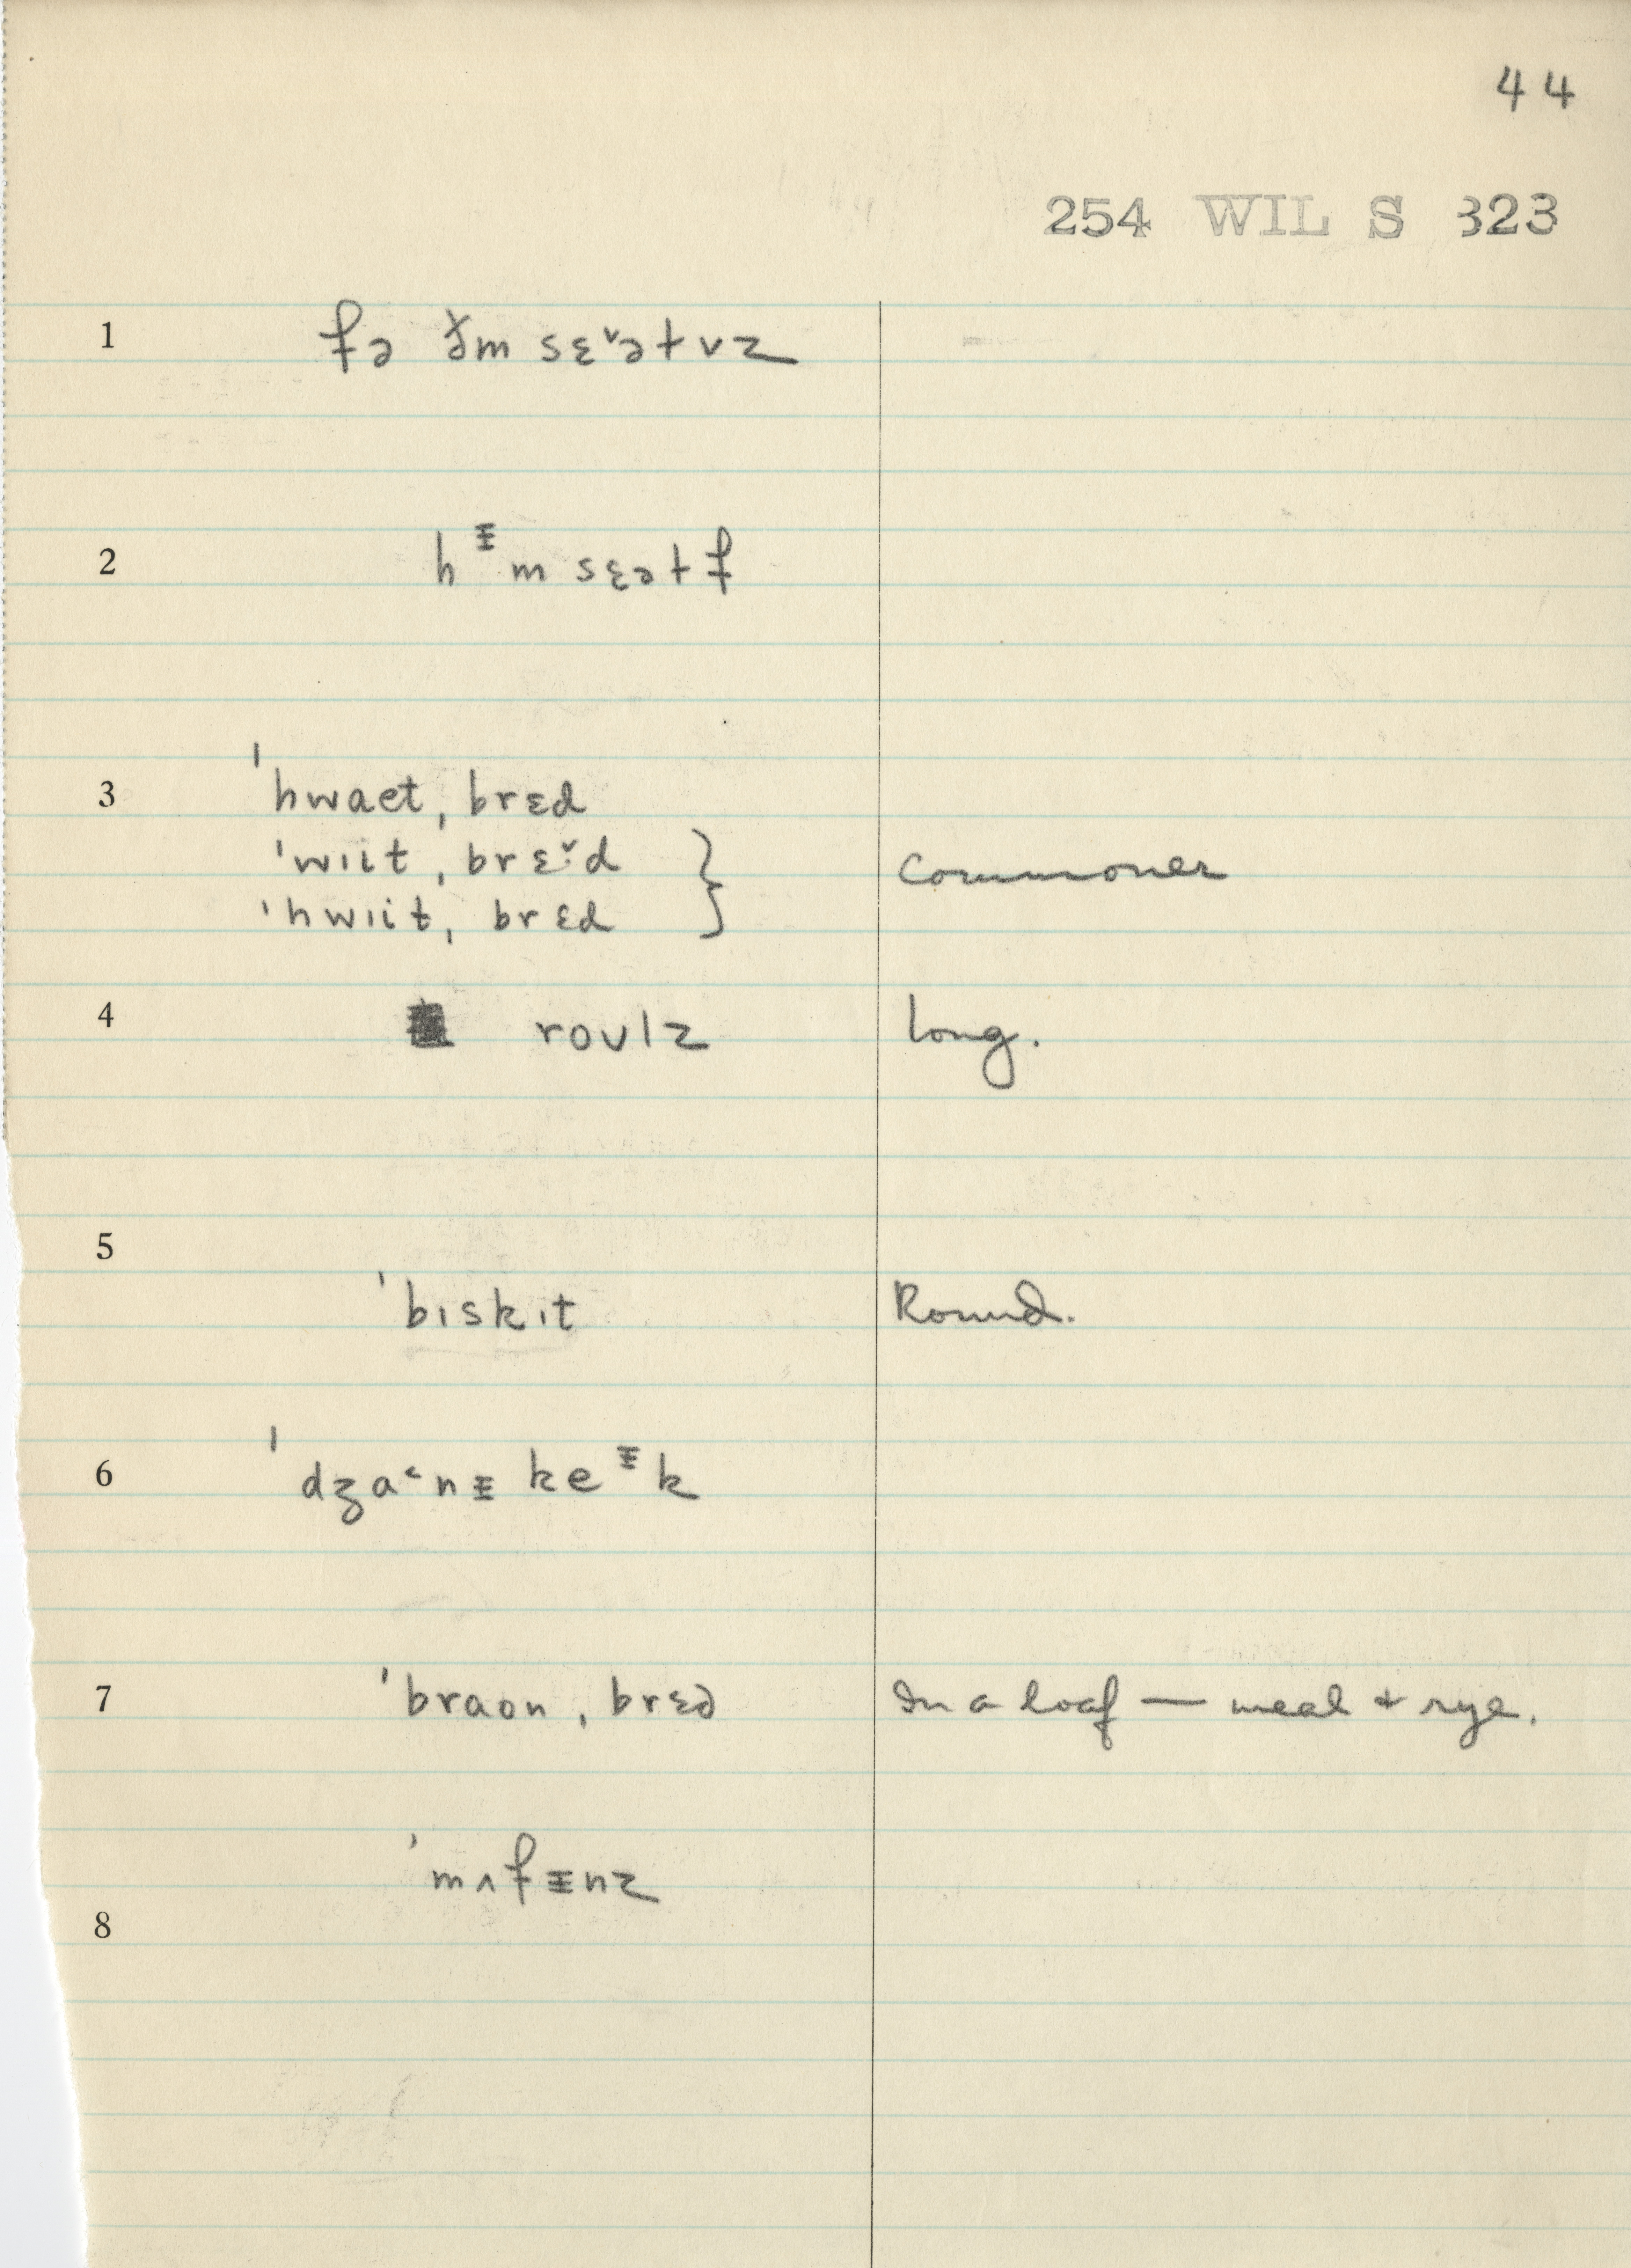 44
254 WIL S 323
1 fə ðm sɛ˅ətvz
2 hᵻm sɛətf
3 ˈhwaet ˌbrɛd
ˈwɪit ˌbrɛ˅·d } Commoner
ˈhwɪit ˌbrɛd
4 roʊlz long.
5 ˈbɪskɪt Round.
6 ˈdʒa˂nᵻ keᵻk
7 ˈbraon ˌbrɛd In a loaf — meal & rye.
8 ˈmʌfᵻnz